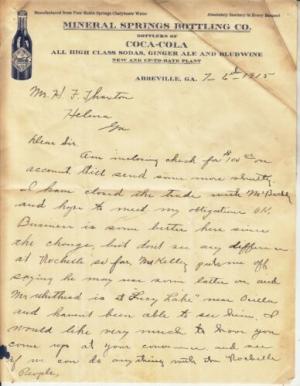 Manufactured from Pure Noble Springs Chalybeate Water
Absolutely Sanitary in Every Respect
MINERAL SPRINGS BOTTLING CO.
BOTTLERS OF
COCA-COLA
ALL HIGH CLASS SODAS, GINGER ALE AND BLUDWINE
NEW AND UP-TO-DATE PLANT
ABBEVILLE, GA. 1915
Mr H. F. Thaxton
Helena
Ga
Dear Sir:
Am inclosing check for $100 00 on
account will send some more shortly.
I have closed the trade with Mr
and hope to meet my obligations OK.
Business is some better here since
the change, but dont see any difference
at Rochelle so far, McKelley puts me off
saying he may use some later on and
Mr Whithead is at "Lucy Lake" near Ocilla
and havent been able to see him. I
would like very much to have you
come up at your convenience and see
if we can do anything with the Rochelle
People,